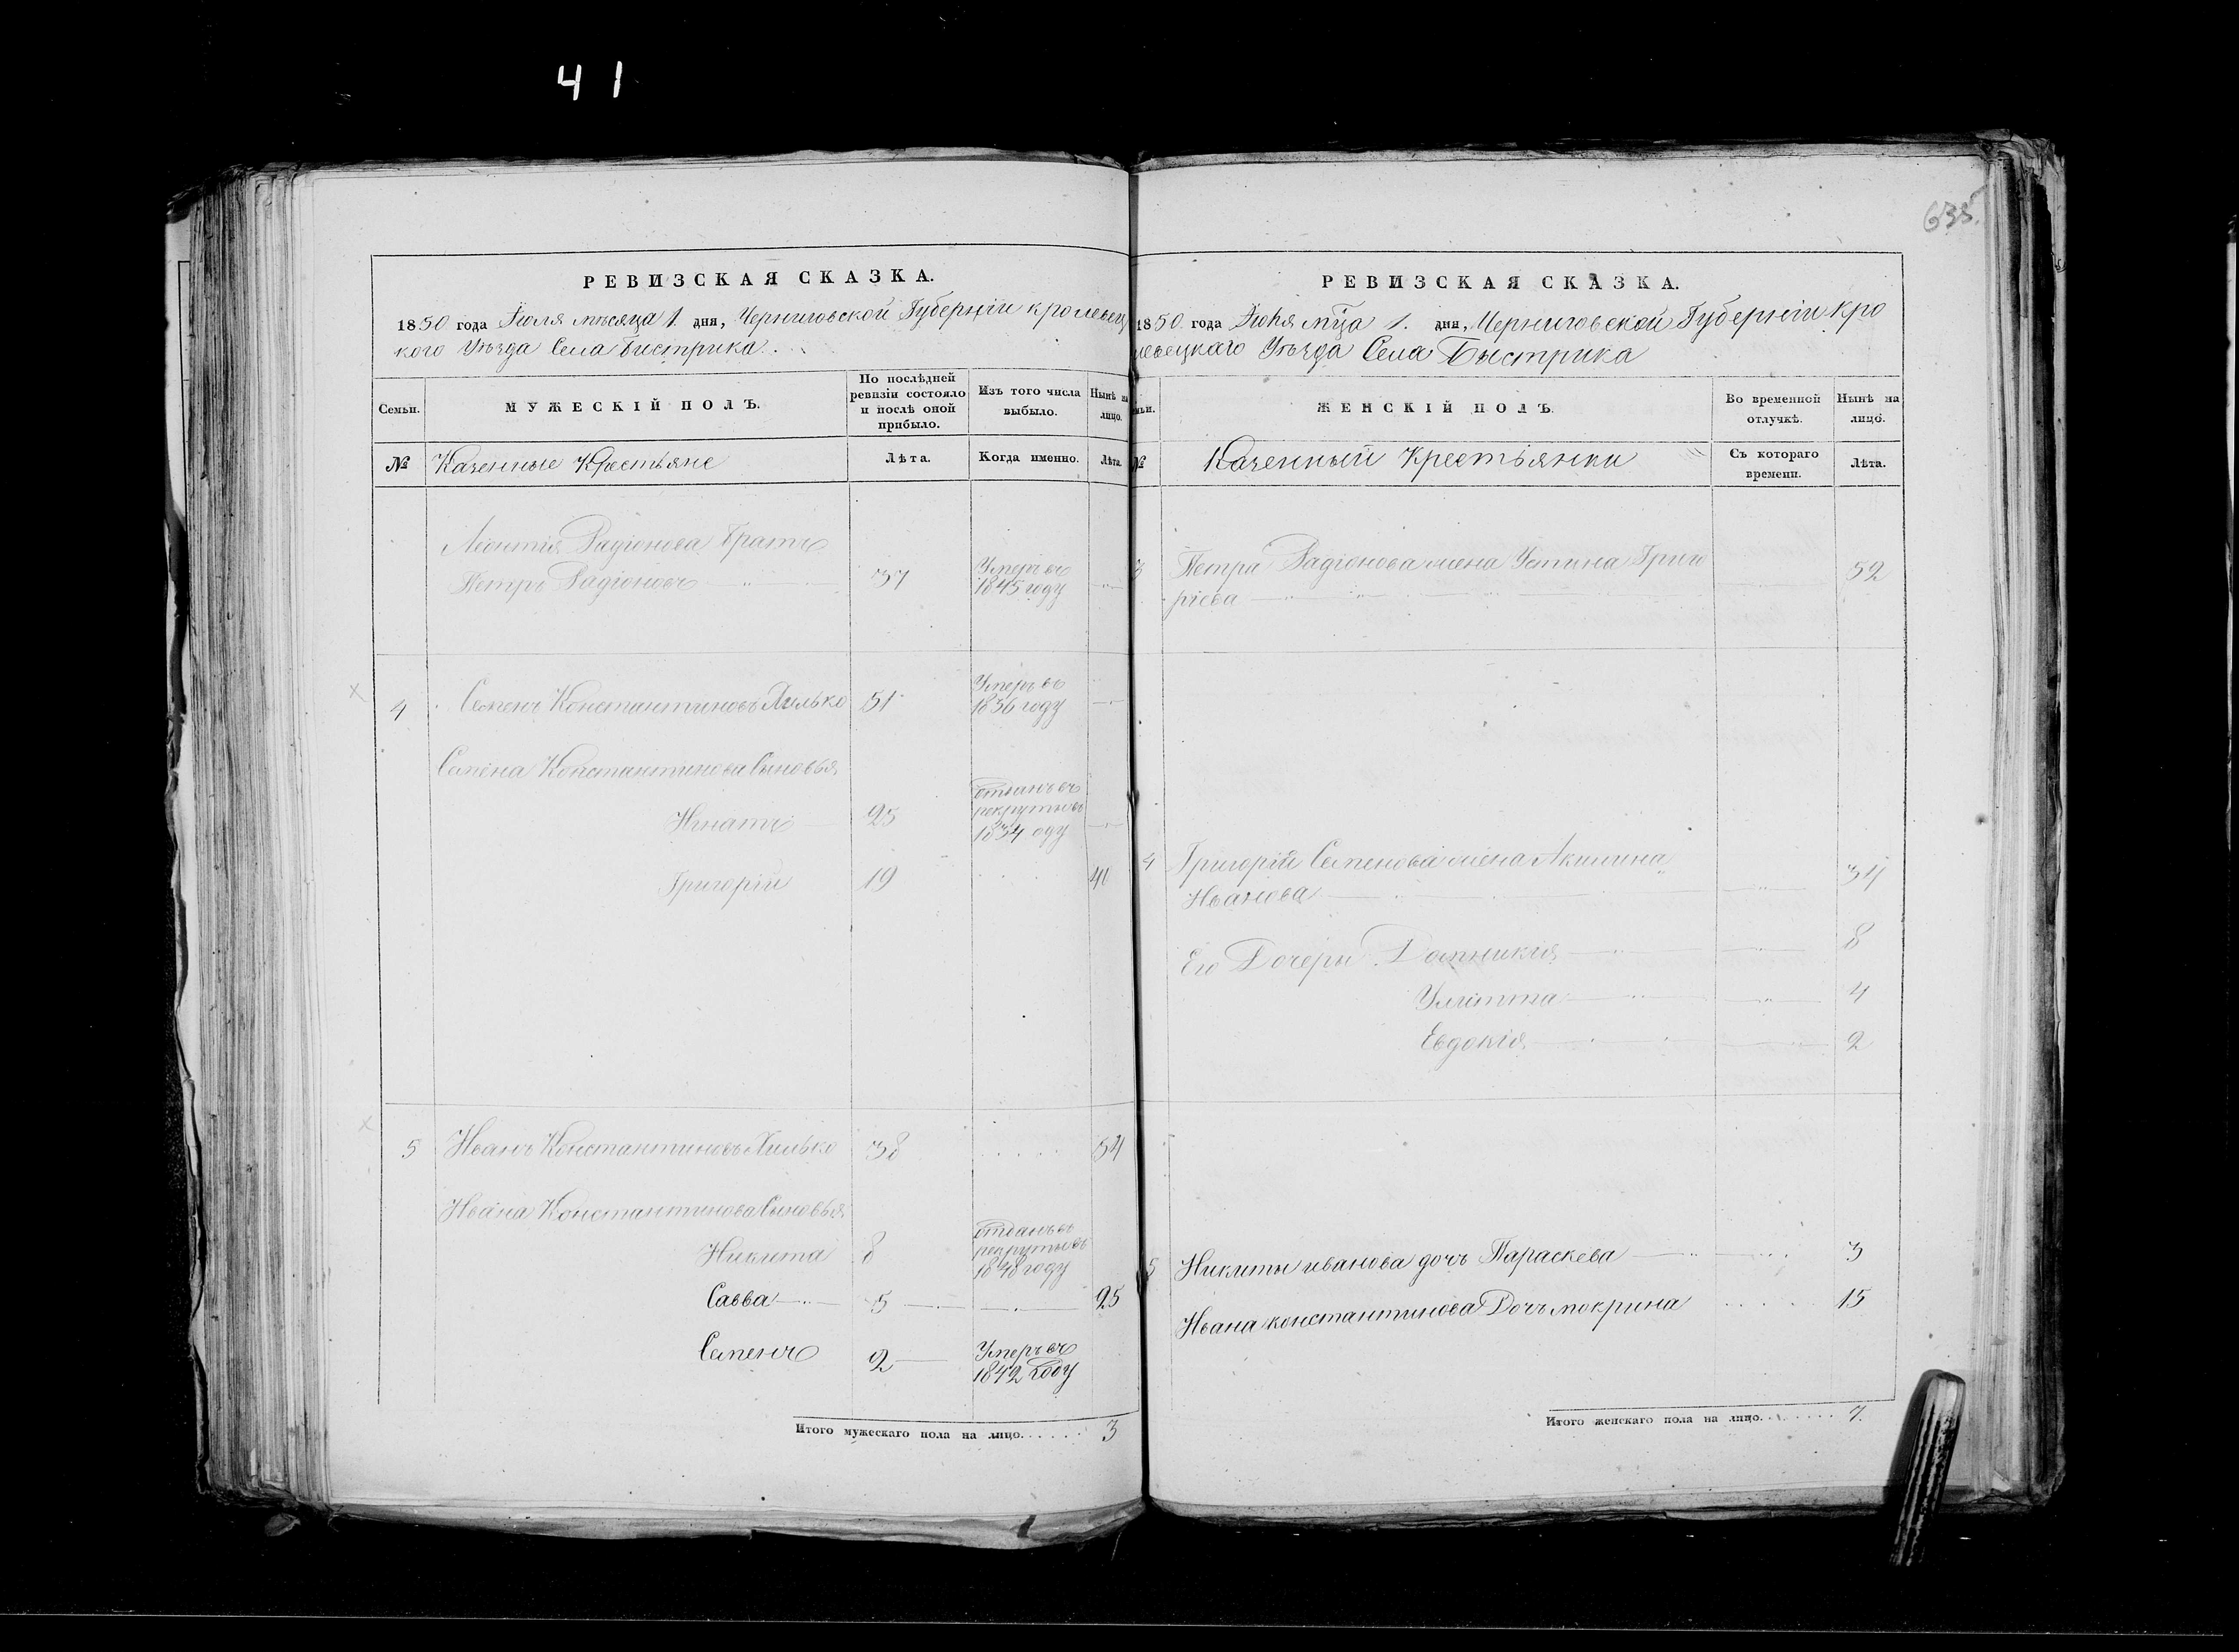 41
635.
РЕВИЗСКАЯ СКАЗКА.
1850 года Іюля мѣсяца 1. дня, Черниговской Губерніи кролевец
кого Уѣзда Села Бистрика.
Семьи.
МУЖЕСКІЙ ПОЛЪ.
По послѣдней
ревизіи состояло
и послѣ оной
прибыло.
Изъ того числа
выбыло.
Нынѣ на
лицо.
№
Казенные Крестьяне
Лѣта.
Когда именно.
Лѣта.
Леонтія Радіонова Братъ
Петръ Радіоновъ 37
Умеръ въ
1845 году
4 Семенъ Константиновъ Хилько 51
Умеръ въ
1836 году
Семена Константинова Сыновья
Игнатъ 25
отданъ въ
рекруты въ
1834 оду
Григорій 19 40
5 Иванъ Константиновъ Хилько 38 54
Ивана Константинова Сыновья
Никита 8
отданъ въ
рекруты въ
1848 году
Савва 5 25
Семенъ 2
Умеръ въ
1842 году
Итого мужескаго пола на лицо...... 3
РЕВИЗСКАЯ СКАЗКА.
1850 года Іюля мца 1. дня, Черниговской Губерніи Кро
левецкаго Уѣзда Села Быстрика
ЖЕНСКІЙ ПОЛЪ.
Во временной
отлучкѣ.
Нынѣ на
лицо.
№
Казенный Крестьянки
Съ котораго
времени.
Лѣта.
3 Петра Радіонова жена Устина Григо
ріева 52
4 Григорій Семенова жена Акилина
Иванова 34
Его Дочери Домникія 8
Улитта 4
Евдокія 2
5 Никиты иванова дочъ Параскева 3
Ивана константинова Дочъ мокрина 15
Итого женскаго пола на лицо....... 7.